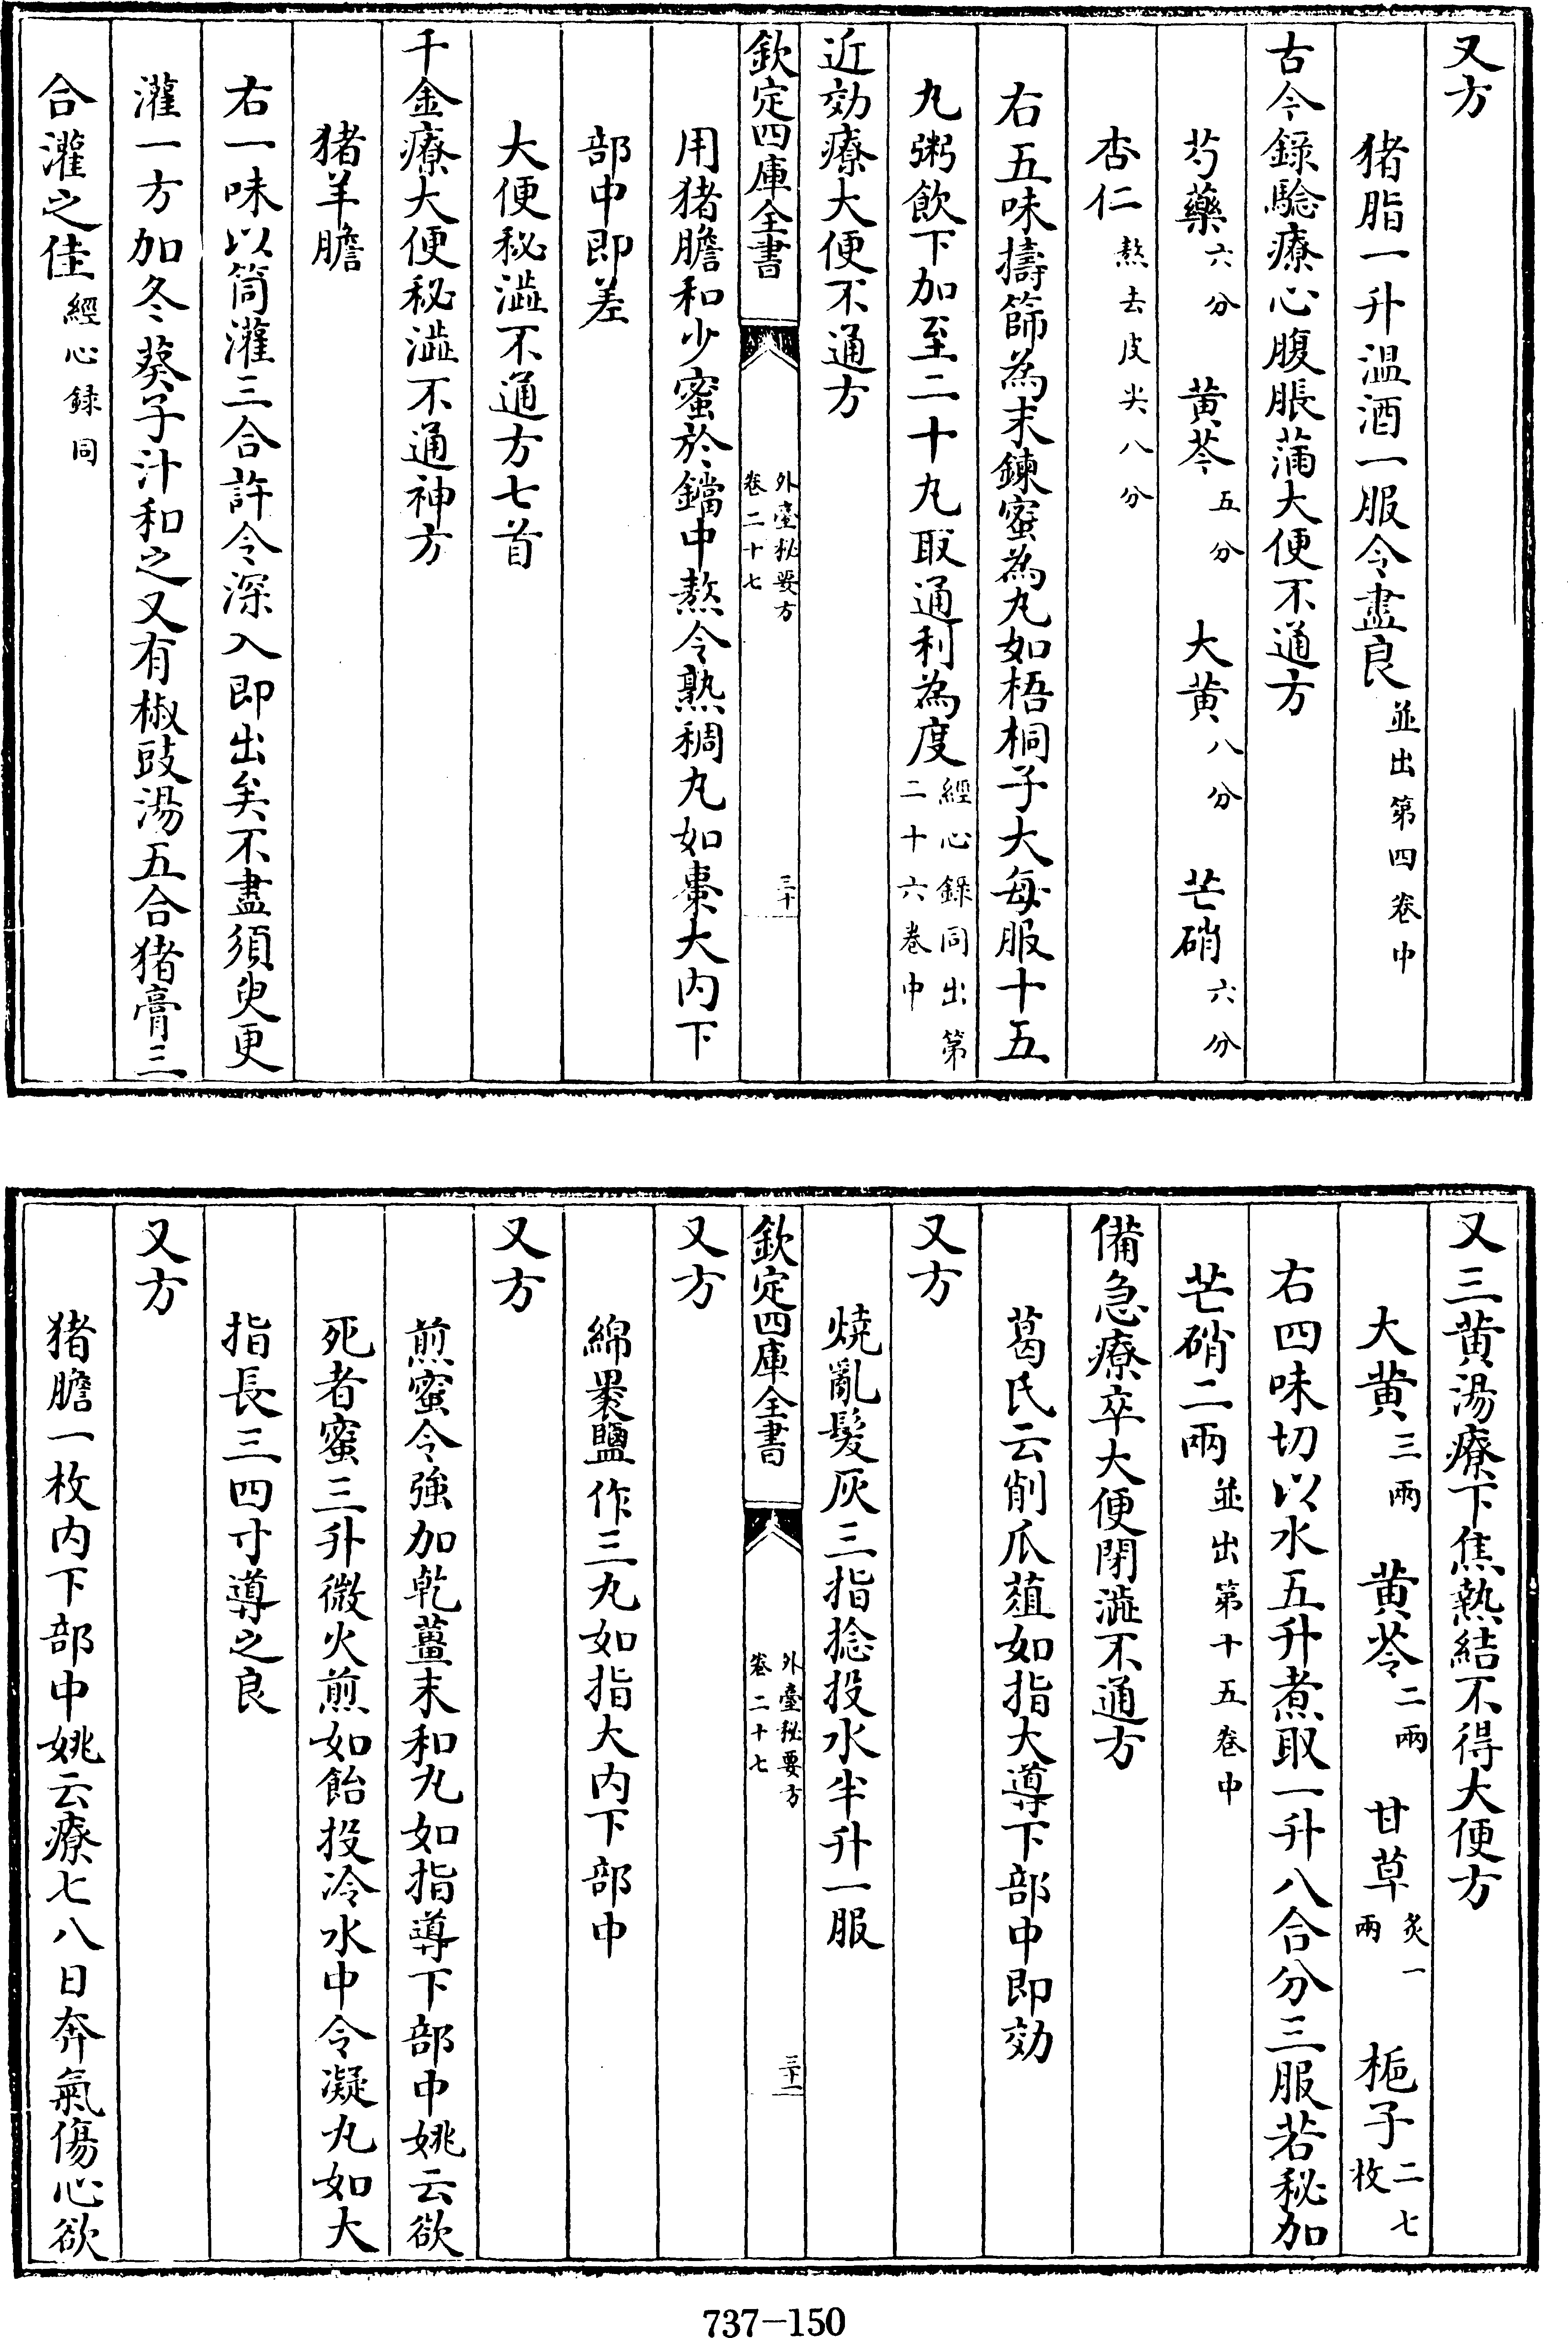 又方
猪脂一升温酒一服令盡良並出第四卷中
古今錄驗療心腹脹滿大便不通方
芍藥六分 黄芩五分 大黄八分 芒硝六分
杏仁熬去皮尖八分
右五味擣篩為末鍊蜜為丸如梧桐子大每服十五
丸粥飲下加至二十丸取通利為度經心錄同出第二十六卷中
近効療大便不通方
欽定四庫全書 外臺秘要方卷二十七 三十
用猪膽和少蜜於鐺中熬令熟稠丸如棗大内下
部中即差
大便秘澁不通方七首
千金療大便秘澁不通神方
猪羊膽
右一味以筒灌三合許令深入即出矣不盡須臾更
灌一方加冬葵子汁和之又有椒豉湯五合猪膏三
合灌之佳經心録同
又三黄湯療下焦熱結不得大便方
大黄三兩 黄芩二兩 甘草炙一兩 梔子二七枚
右四味切以水五升煮取一升八合分三服若秘加
芒硝二兩並出第十五卷中
備急療卒大便閉澁不通方
葛氏云削瓜葅如指大導下部中即効
又方
燒亂髮灰三指捻投水半升一服
欽定四庫全書 外臺秘要方卷二十七 三十一
又方
綿裹鹽作三丸如指大内下部中
又方
煎蜜令強加乾薑末和丸如指導下部中姚云欲
死者蜜三升微火煎如飴投冷水中令凝丸如大
指長三四寸導之良
又方
猪膽一枚内下部中姚云療七八日奔氣傷心欲
737-150